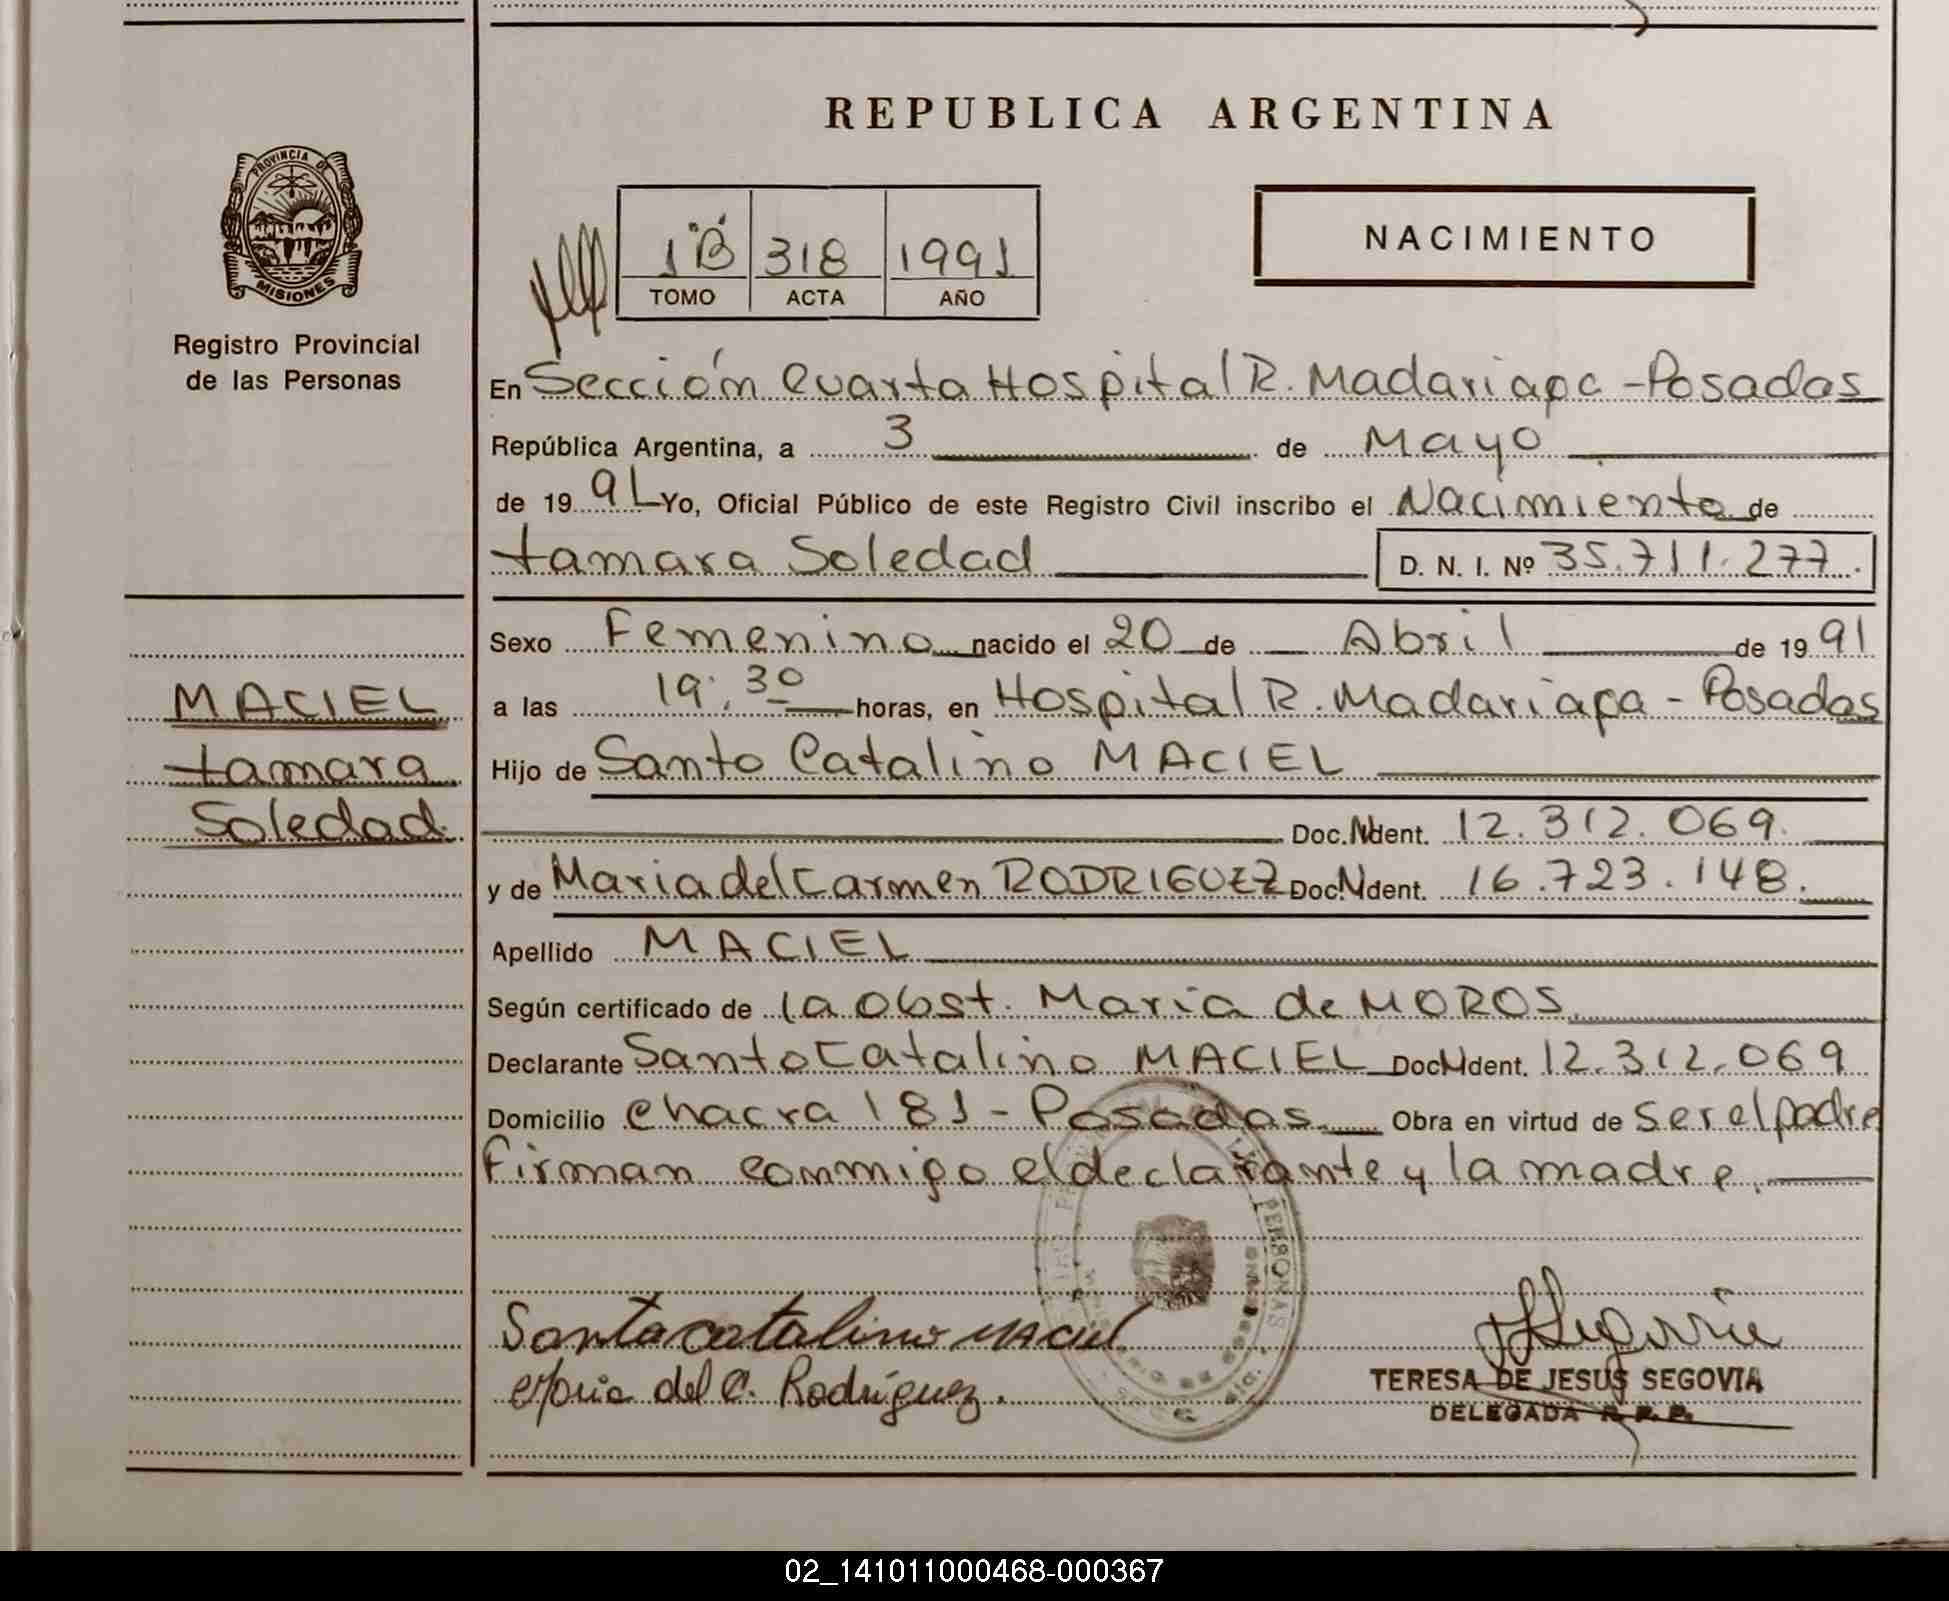 REPUBLICA ARGENTINA
PROVINCIA DE
MISIONES
Registro Provincial
de las Personas
1"B" 318 1991
TOMO ACTA AÑO
NACIMIENTO
En Sección Cuarta Hospital R. Madariaga - Posadas
República Argentina, a 3 de Mayo
de 1991 Yo, Oficial Público de este Registro Civil inscribo el Nacimiento de
tamara Soledad D. N. I. Nº 35.711.277.
Sexo Femenino nacido el 20 de Abril de 1991
a las 19:30 horas, en Hospital R. Madariaga - Posadas
Hijo de Santo Catalino MACIEL
Doc. Ident. 12.312.069.
y de Maria del Carmen RODRIGUEZ Doc. Ident. 16.723.148.
Apellido MACIEL
Según certificado de la Obst. Maria de MOROS.
Declarante Santo Catalino MACIEL Doc. Ident. 12.312.069
Domicilio Chacra 181 - Posadas. Obra en virtud de Ser el padre
Firman conmigo el declarante y la madre.
MACIEL
tamara
Soledad.
PERSONAS
Santo catalino MACIEL
Maria del C. Rodríguez.
TERESA DE JESUS SEGOVIA
DELEGADA R. P. P.
02_141011000468-000367